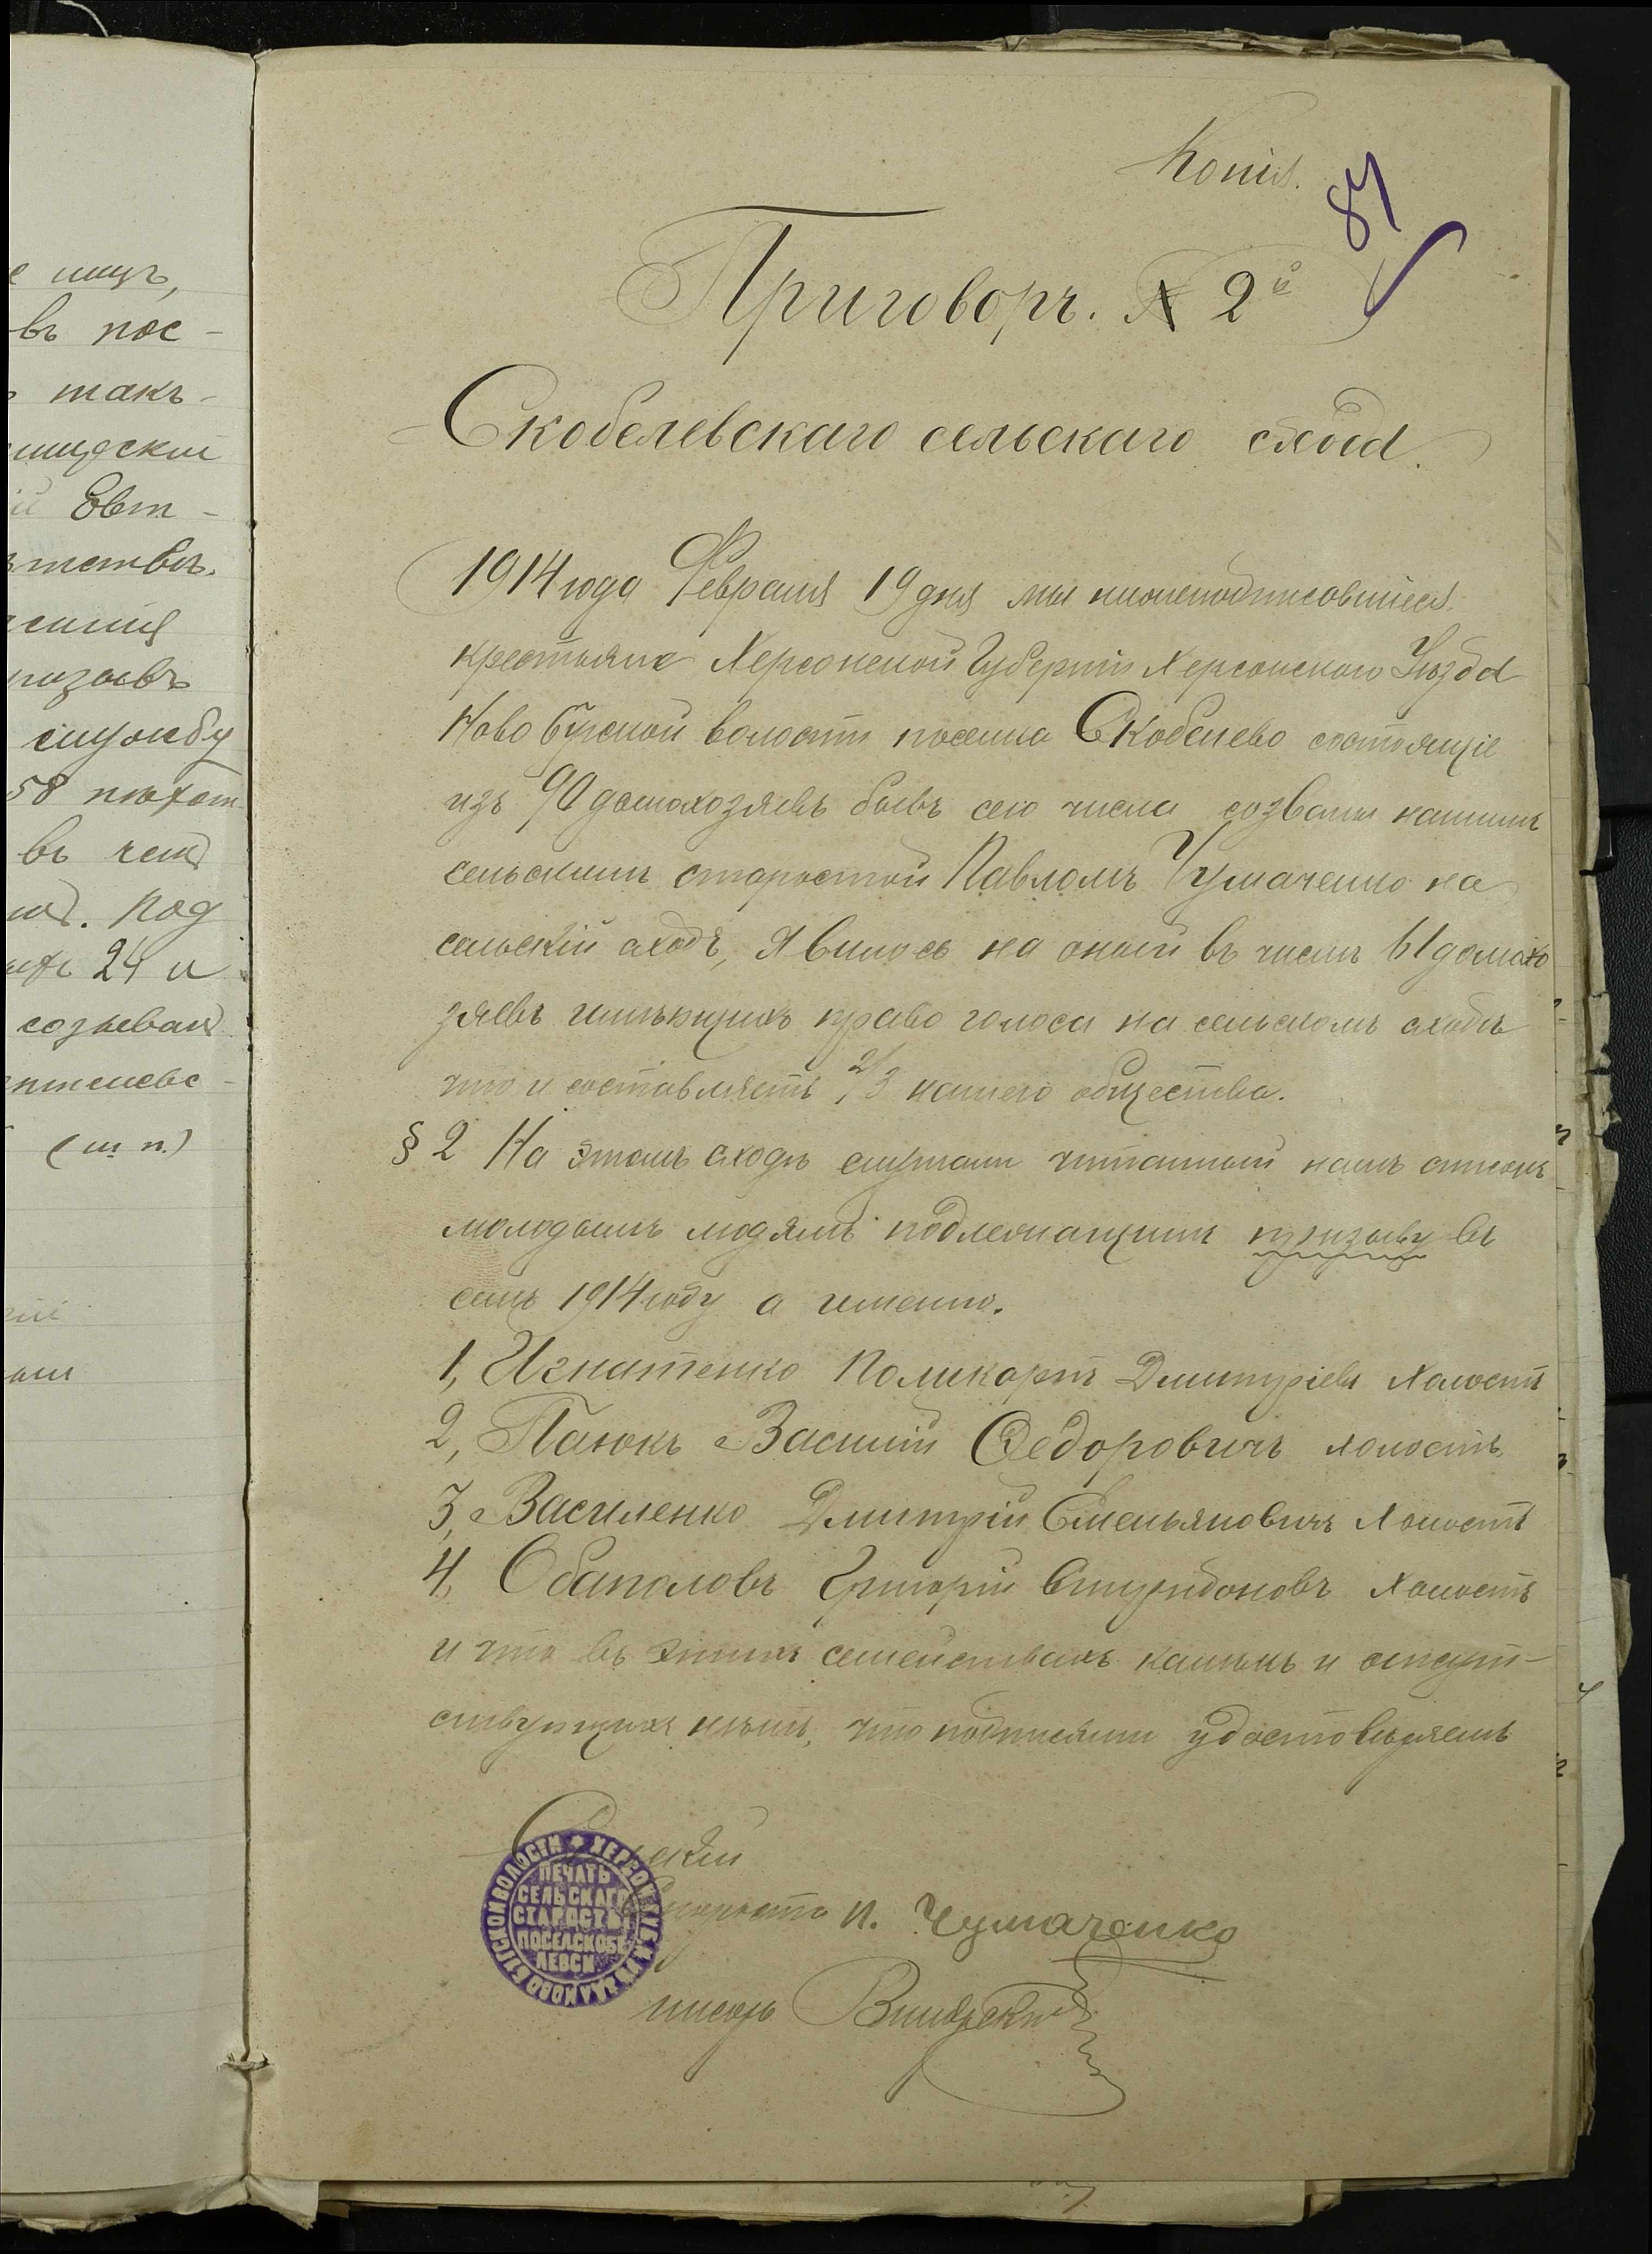 е лицъ,
въ пос-
такъ-
Евт-
службу
58 пѣхот
въ чемъ
Под
24 и
созывая
(м п.)
Копія.
87
Приговоръ. № 2й
Скобелевскаго сельскаго схода.
1914 года Февраля 19 дня мы нижеподписавшіеся
крестьяне Херсонской Губерніи Херсонскаго Уѣзда
Ново Бугской волости поселка Скобелево состоящіе
изъ 90 домохозяевъ бывъ сего числа созваны нашимъ
сельскимъ старостой Павломъ Чумаченко на
сельскій сходъ, явилось на оный въ числѣ 61 домохо
зяевъ имѣющихъ право голоса на сельскомъ сходѣ
что и составляетъ 2/3 нашего общества.
§ 2 На этомъ сходѣ слушали читанный намъ списокъ
молодымъ людямъ подлежащимъ призыву въ
семъ 1914 году а именно.
1, Игнатенко Поликарпъ Дмитріевъ Холостъ
2, Паюкъ Василій Федоровичъ холостъ
3, Василенко Дмитрій Емельяновичъ Холостъ
4, Обаполовъ Григорій Спиридоновъ Холостъ
и что въ этихъ семействахъ и отсут-
ствующихъ нѣтъ, что подписями удостовѣряемъ
Сельскій
Староста П. Чумаченко
писарь
ПЕЧАТЬ
СЕЛЬСКАГО
СТАРОСТЫ
ПОС. СКОБЕ
ЛЕВСК.